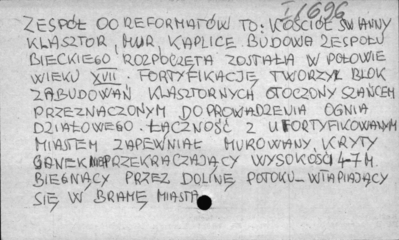 I/696
ZESPÓŁ OO REFORMATÓW TO: KOŚCIÓŁ ŚW ANNY
KLASZTOR, MUR, KAPLICE BUDOWA ZESPOŁU
BIECKIEGO ROZPOCZĘTA ZOSTAŁA W POŁOWIE
WIEKU XVII. FORTYFIKACJĘ TWORZYŁ BLOK
ZABUDOWAŃ KLASZTORNYCH OTOCZONY SZAŃCEM
PRZEZNACZONYM DO PROWADZENIA OGNIA
DZIAŁOWEGO. ŁĄCZNOŚĆ Z UFORTYFIKOWANYM
MIASTEM ZAPEWNIAŁ MUROWANY, KRYTY
GANEK NIE PRZEKRACZAJĄCY WYSOKOŚCI 4-7 M.
BIEGNĄCY PRZEZ DOLINĘ POTOKU - WTAPIAJĄCY
SIĘ W BRAMĘ MIASTA